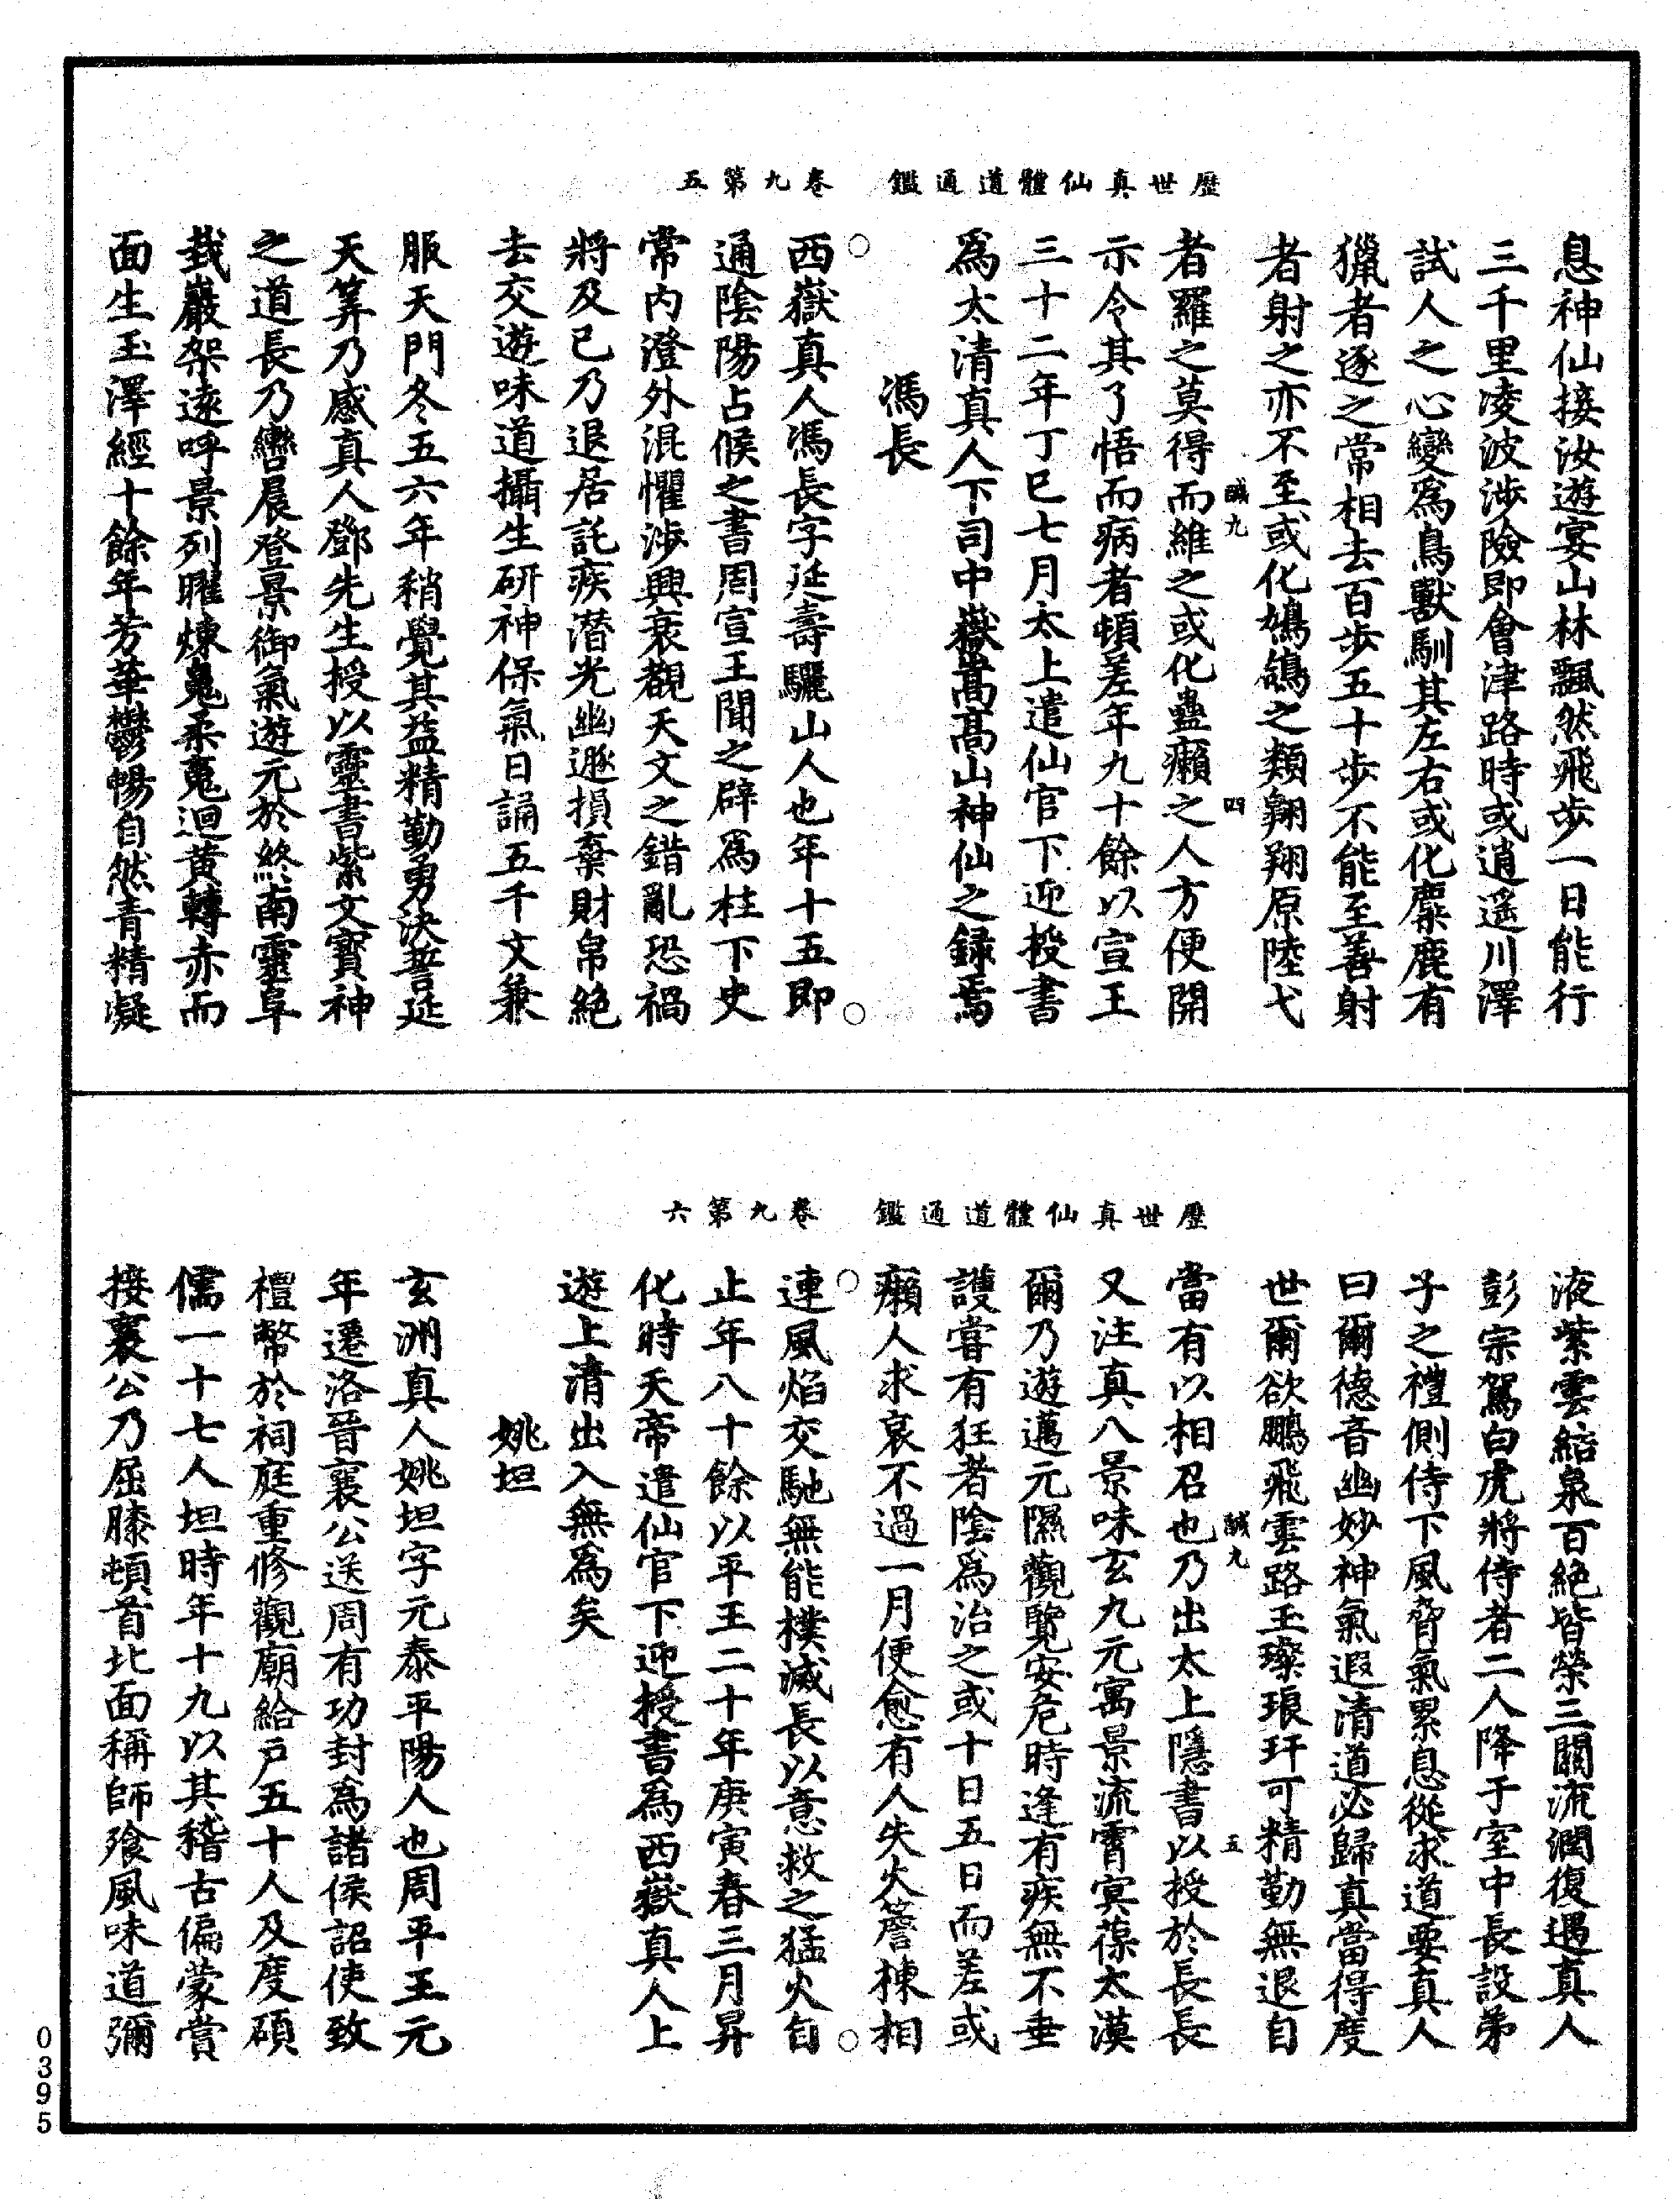 歷世真仙體道通鑑　卷九第五
息神仙接汝遊宴山林飄然飛步一日能行
三千里凌波涉險即會津路時或逍遙川澤
試人之心變為鳥獸馴其左右或化麋鹿有
獵者逐之常相去百步五十步不能至善射
者射之亦不至或化鳩鴿之類翱翔原陸弋
鹹九　四
者羅之莫得而維之或化蠱癩之人方便開
示令其了悟而病者頓差年九十餘以宣王
三十二年丁巳七月太上遣仙官下迎授書
為太清真人下司中嶽嵩高山神仙之録焉
馮長
西嶽真人馮長字延壽驪山人也年十五即
通陰陽占候之書周宣王聞之辟為柱下史
常內澄外混懼涉興衰覩天文之錯亂恐禍
將及已乃退居託疾潛光幽遯損棄財帛絕
去交遊味道攝生研神保氣日誦五千文兼
服天門冬五六年稍覺其益精勤勇決誓延
天筭乃感真人鄧先生授以靈書紫文寶神
之道長乃轡晨登景御氣遊元於終南靈阜
栽巖架遠呼景列曜煉魂柔魄迴黃轉赤而
面生玉澤經十餘年芳華鬱暢自然青精凝
歷世真仙體道通鑑　卷九第六
液紫雲結泉百絕皆榮三關流潤復遇真人
彭宗駕白虎將侍者二人降于室中長設弟
子之禮側侍下風脅氣累息從求道要真人
曰爾德音幽妙神氣遐清道必歸真當得度
世爾欲鵬飛雲路玉璨琅玕可精勤無退自
鹹九　五
當有以相召也乃出太上隱書以授於長長
又注真八景味玄九元寓景流霄冥葆太漠
爾乃遊邁元隰觀覽安危時逢有疾無不垂
護嘗有狂者陰為治之或十日五日而差或
癩人求哀不過一月便愈有人失火簷棟相
連風焰交馳無能樸滅長以意救之猛火自
止年八十餘以平王二十年庚寅春三月昇
化時天帝遣仙官下迎授書為西嶽真人上
遊上清出入無為矣
姚坦
玄洲真人姚坦字元泰平陽人也周平王元
年遷洛晉襄公送周有功封為諸侯詔使致
禮幣於祠庭重修觀廟給戶五十人及度碩
儒一十七人坦時年十九以其稽古偏蒙賞
接襄公乃屈膝頓首北面稱師飱風味道彌
0395